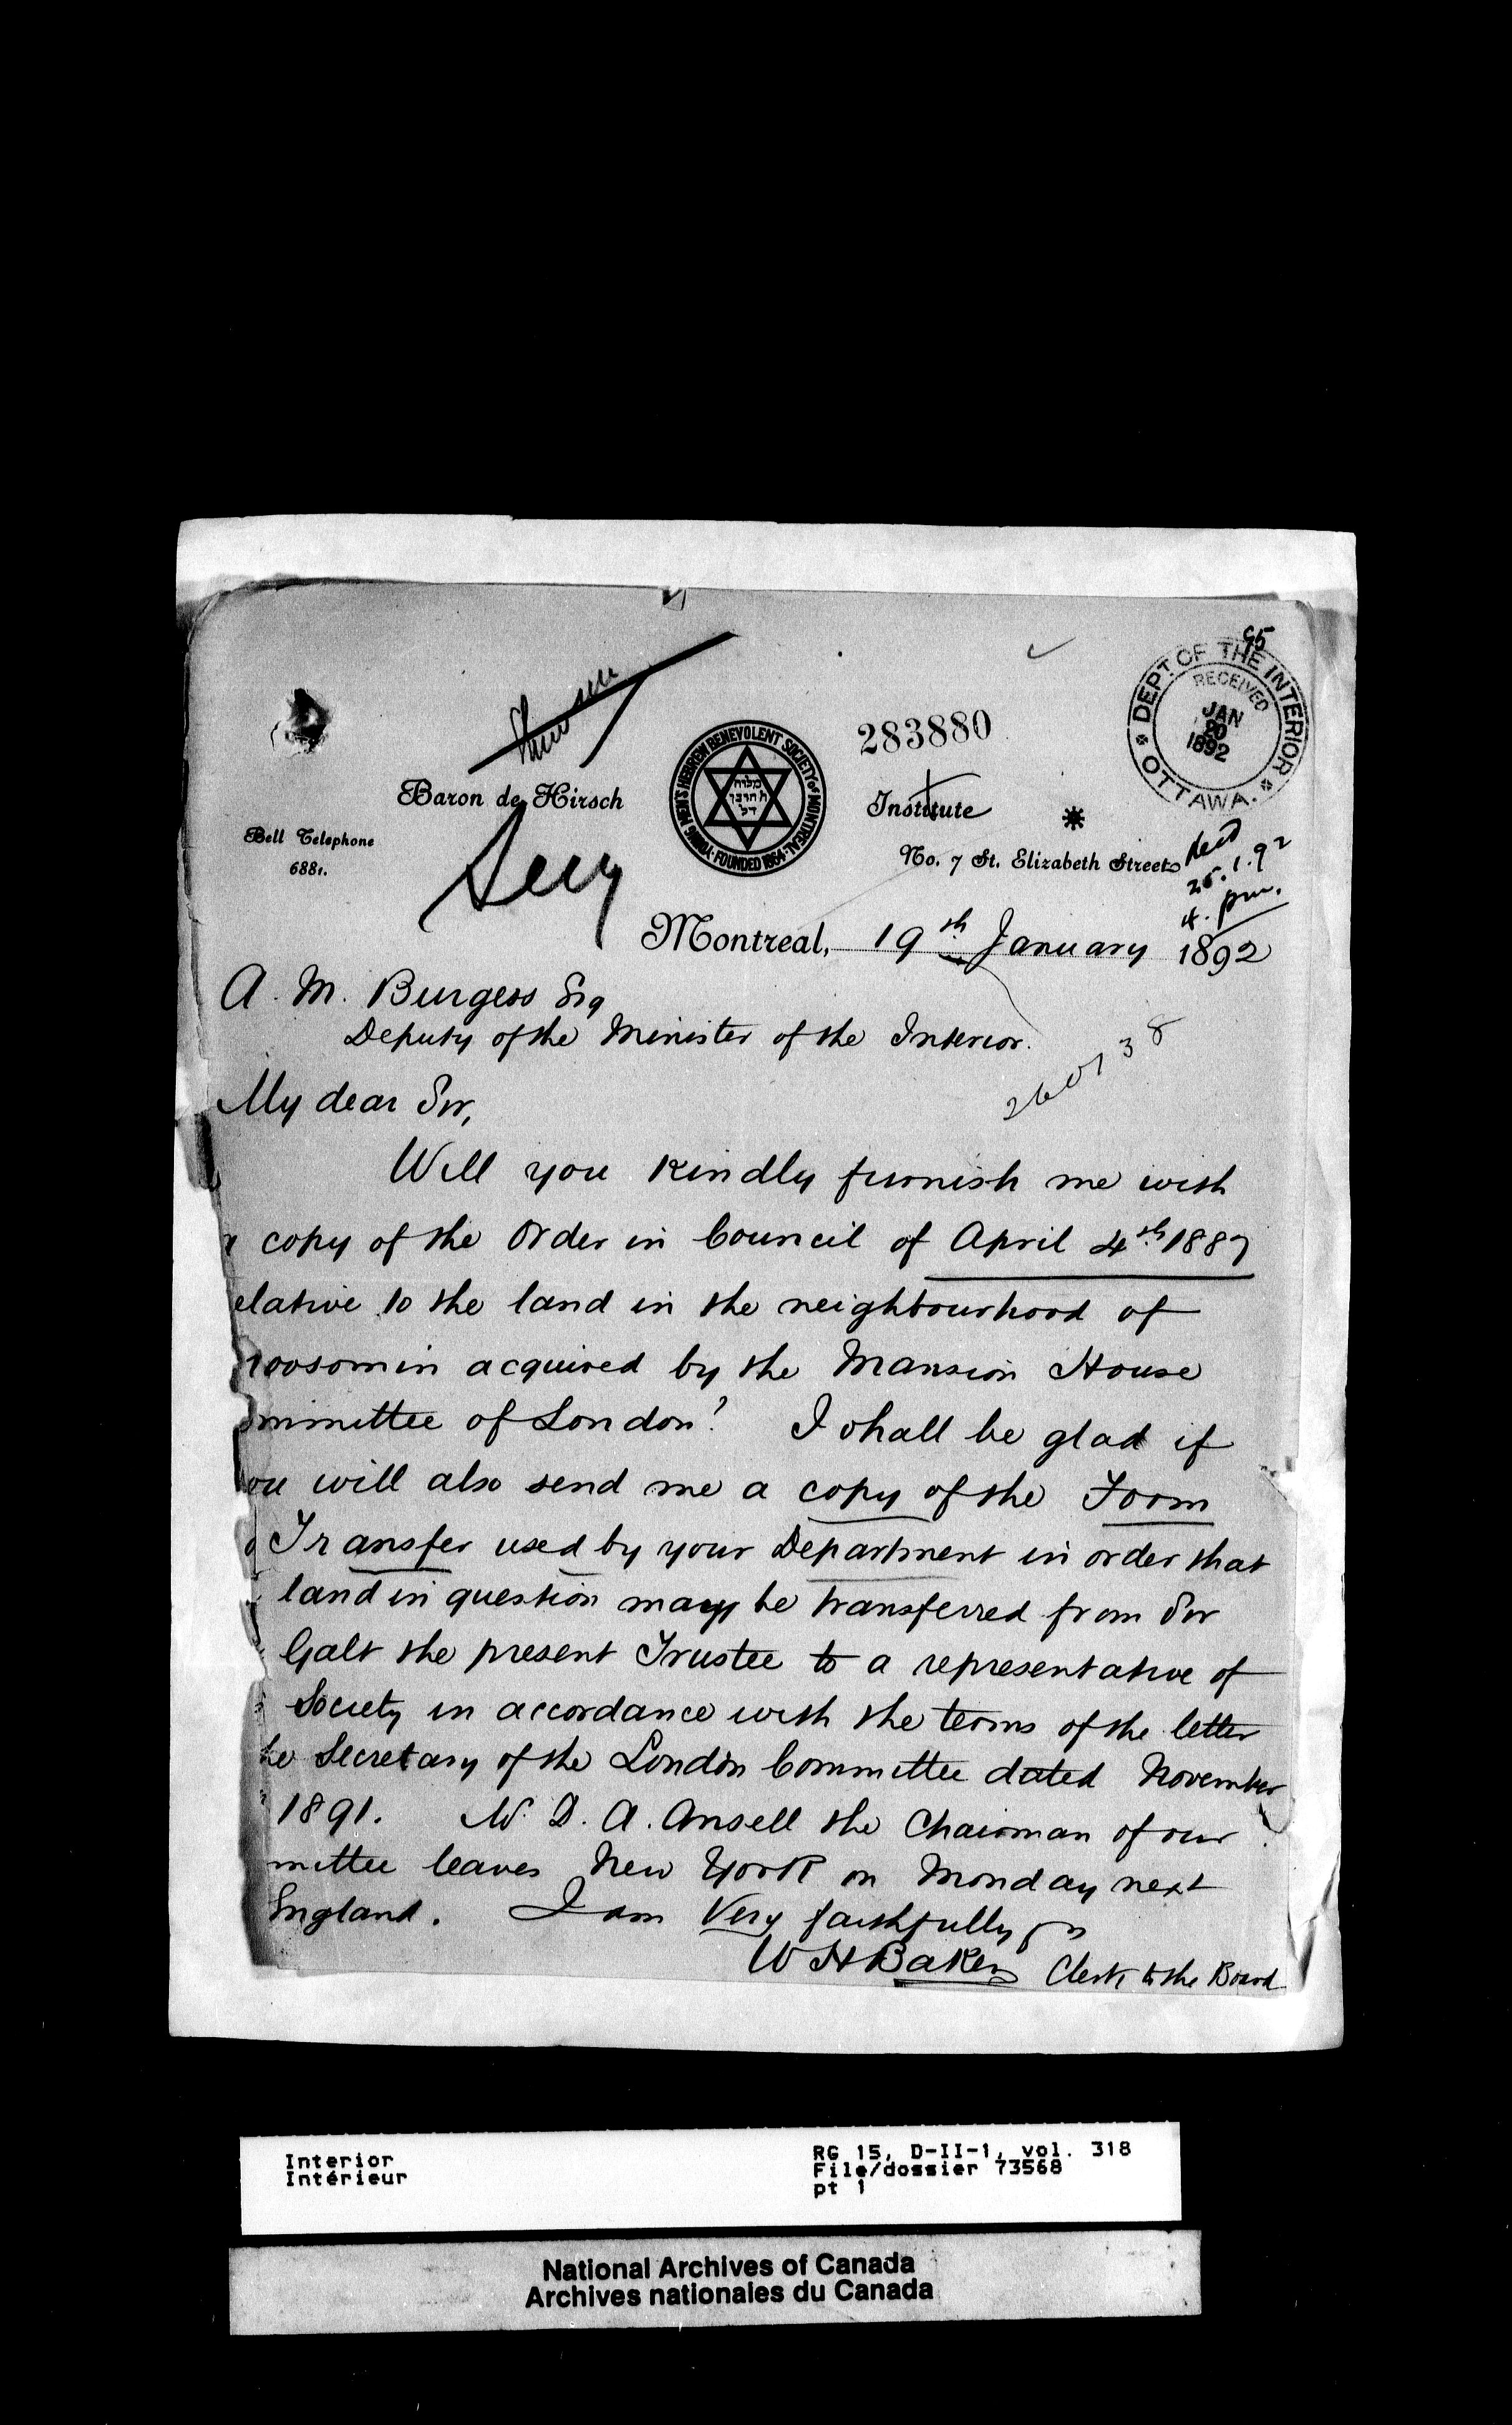 55
DEPT. OF THE INTERIOR
RECEIVED
JAN
20
1892
OTTAWA.
283880
YOUNG MEN'S HEBREW BENEVOLENT SOCIETY of MONTREAL
FOUNDED 1864
Baron de Hirsch Institute
Bell Telephone
6881.
No. 7 St. Elizabeth Street
Secy
Recd
25.1.92
4. pm.
Montreal, 19th January 1892
A. M. Burgess Esq
Deputy of the Minister of the Interior.
My dear Sir,
Will you kindly furnish me with
a copy of the Order in Council of April 4th 1887
elative to the land in the neighbourhood of
oosomin acquired by the Mansion House
ommittee of London? I shall be glad if
ou will also send me a copy of the Form
Transfer used by your Department in order that
land in question may be transferred from Sir
Galt the present Trustee to a representative of
Society in accordance with the terms of the letter
he Secretary of the London Committee dated November
1891. D. A. Ansell the Chairman of our
mittee leaves New York on Monday next
England. I am Very faithfully
W H Baker Clerk to the Board
Interior
Intérieur
RG 15, D-II-1, vol. 318
File/dossier 73568
pt 1
National Archives of Canada
Archives nationales du Canada